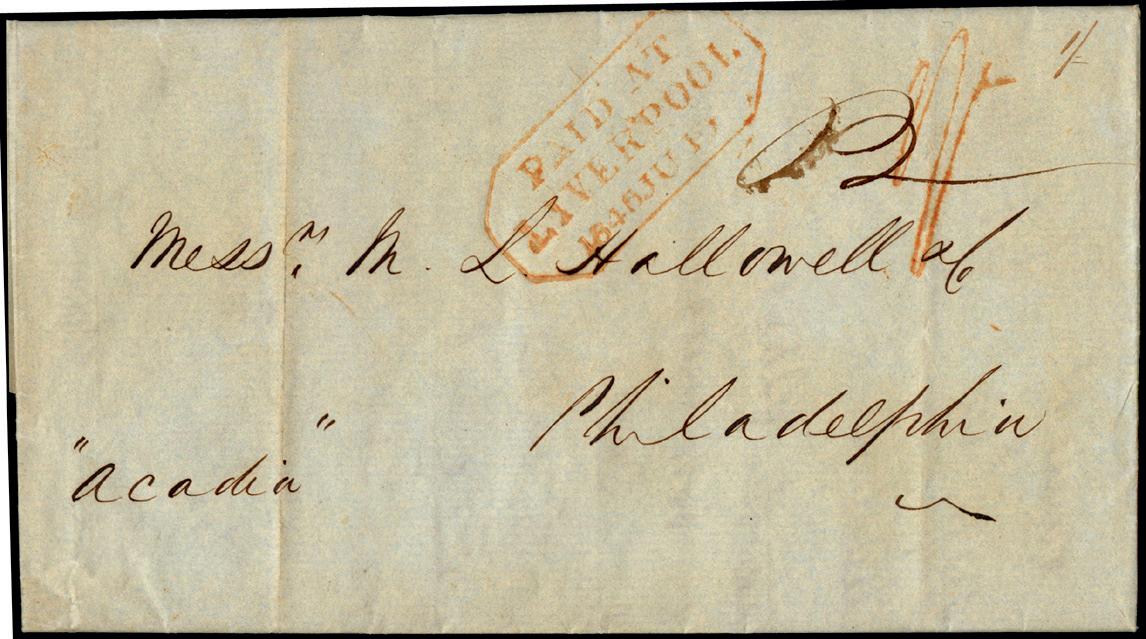 PAID AT
LIVERPOOL
1/-
Mess.rs M. L. Hallowell & Co
Philadelphia
"Acadia"